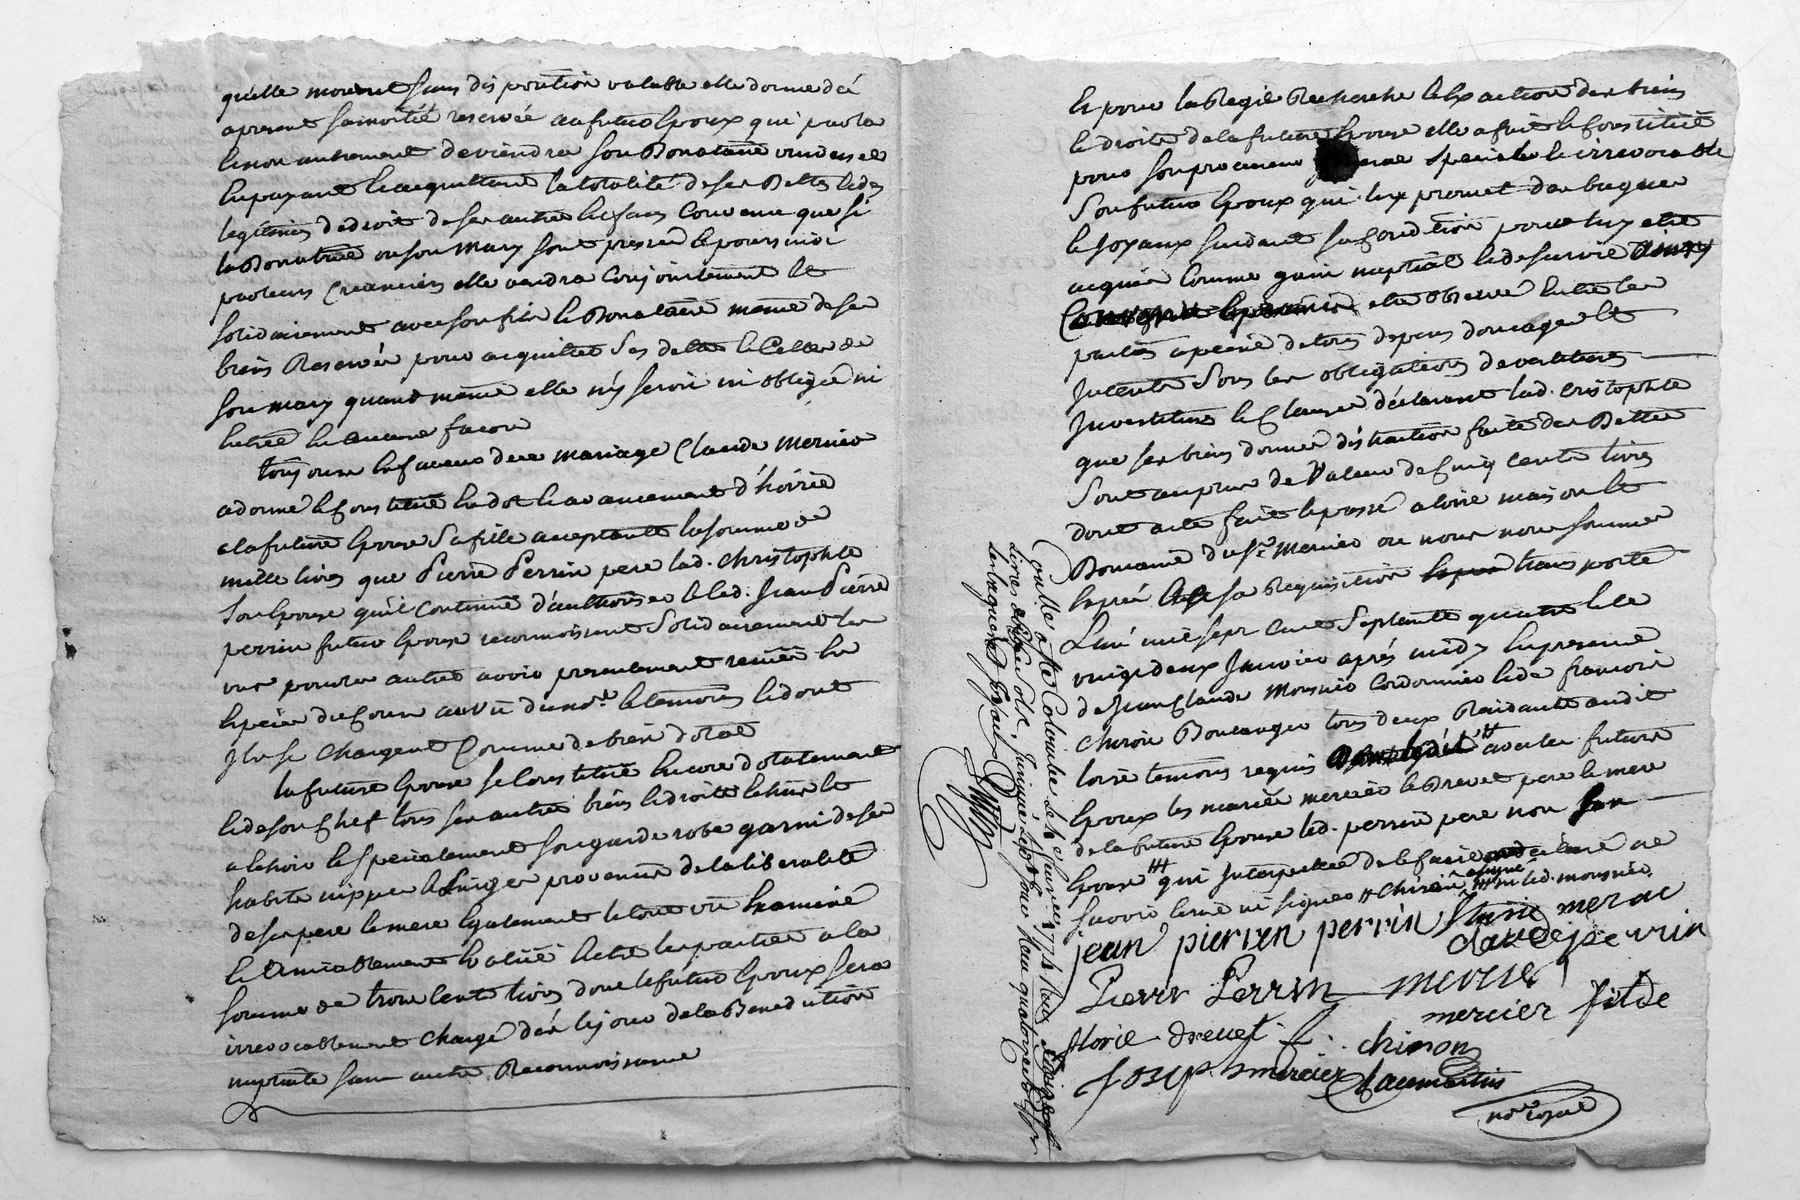 quelle mourut sans disposition valable elle donne dé
apresent sa moitié reservée au futur Epoux qui par la
et non autrement deviendra son Donataire universel
en payant et acquittant la totalité de ses Dettes et des
legitimes de droit de ses autres Enfans Convenu que si
la Donatrice ou son mary sont pressés et poursuivis
par leurs Creanciers elle vendra Conjointement et
solidairement avec son fils et Donataire même de ses
biens Reservés pour acquitter ses dettes et Celles de
son mary quand même elle n'y seroit ni obligée ni
entrée en aucune facon
toujours en faveur de ce mariage Claude mercier
a donné et Constitué en dot et avancement d'hoirie
a la future Epouse sa fille acceptante la somme de
mille livres que Pierre Perrin pere lad. Christophle
son Epouse qu'il continue d'authoriser et led. Jean Pierre
perrin futur Epoux reconnoissent solidairement les
uns pour les autres avoir presentement receu en
espèces du Cours au vû du no.re et temoins et dont
Ils se chargent Comme de bien dotal
la future Epouse se Constitue encore dotalement
et de son Chef tous ses autres biens et droits echus et
a echoir et specialement son garde robe garni de ses
habits nippes et linges provenus de la liberalité
de ses pere et mere Egalement le tout vû Examiné
et amiablement Evalué Entre les parties a la
somme de trois cent livres dont le futur Epoux sera
irrevocablement chargé dés le jour de la Benediction
nuptiale sans autre Reconnoissance
Et pour la Regie Recherche et Exaction des biens
et droits de la future Epouse elle a fait et Constitué
pour son procureur special et irrevocable
son futur Epoux qui luy promet des bagues
et Joyaux suivant sa Condition pour luy etre
acquis Comme gain nuptial et de survie ainsy
etre observé Entre les
parties a peine de tous depens domages et
Interets sous les obligations devestitures
Investitures et Clauses déclarant lad. cristophle
que ses biens donnés distraction faite des Dettes
sont au plus de Valeur de Cinq cents livres
dont acte fait et passé a loire maison et
Domaine du s.r Mercier ou nous nous sommes
Exprés a sa Requisition transporté
L'an mil sept cent septante quatre et le
vingt deux Janvier aprés midy En presence
de Jean Claude Mousnier Cordonnier et de francois
chiron Boulanger tous deux Residants audit
loire temoins requis avec les futurs
Epoux les mariés mercier et Drevet pere et mere
de la future Epouse led. perrin pere non son
Epouse qui Interpellée de le faire a declaré ne
savoir ecrire ni signer chiron a signé ni led. mousnier
jean pierre perrin florie merac
claude perrin
Pierre Perrin mercier
mercier fils de
florie drevet chiron
Joseph mercier Chaumartin
no.re royal
Conllé a Ste Colombe le Janvier 1774 Reçu
livres sols,